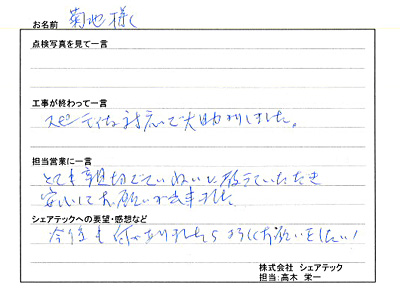 お名前 菊地 様
点検写真を見て一言
工事が終わって一言
スピーディな対応で大助かりしました。
担当営業に一言
とても親切でていねいに教えていただき
安心してお願いが出来ました
シェアテックへの要望・感想など
今後も何かありましたらよろしくお願いをしたい!
株式会社 シェアテック
担当:高木 栄一